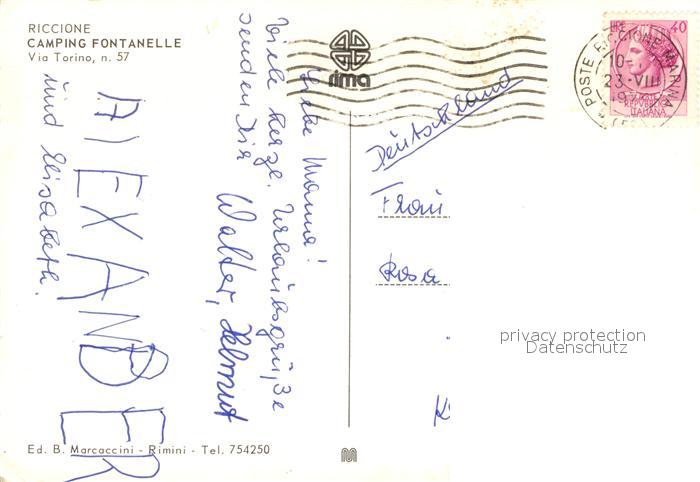 RICCIONE
CAMPING FONTANELLE
Via Torino, n. 57
rima
LIRE 40
POSTE RICCIONE MARINA
10-
23-VIII
19
REPUBBLICA
ITALIANA
Liebe Mama!
Viele herzl. Urlaubsgrüße
senden Dir Walter, Helmut
ALEXANDER
und Elisabeth.
Deutschland
Frau
Rosa
K
privacy protection
Datenschutz
Ed. B. Marcaccini - Rimini - Tel. 754250
m